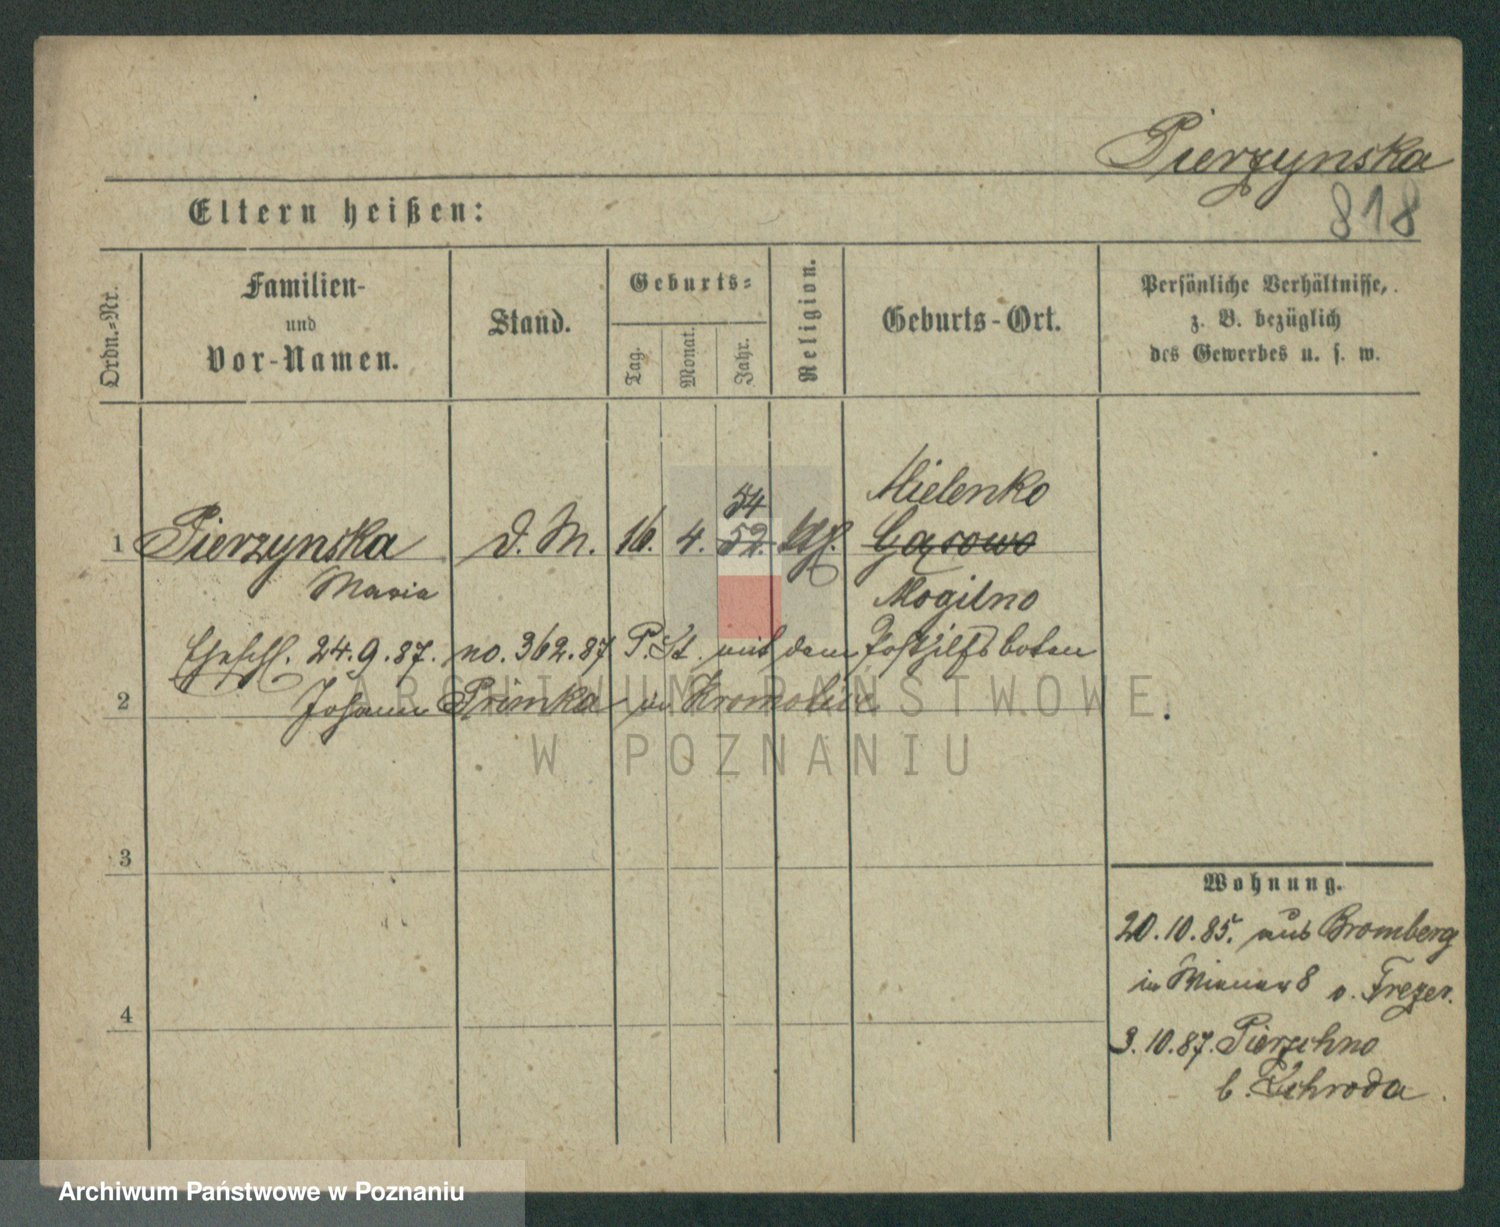 Pierzynska
818
Eltern heißen:
Ordn.-Nr.
Familien-
und
Vor-Namen.
Stand.
Geburts-
Tag.
Monat.
Jahr.
Religion.
Geburts-Ort.
Persönliche Verhältnisse,
z. B. bezüglich
des Gewerbes u. s. w.
Mielenko
54
1 Pierzynska d. M. 16. 4. 52. Gąsowo
Maria Mogilno
Ehschl. 24.9.87. no. 362.87 P. St. mit dem Posthilfsboten
2 Johann Primka in Kromolice
ARCHIWUM PAŃSTWOWE
W POZNANIU
3
Wohnung.
20.10.85. aus Bromberg
in Wiener 8 v. Trezer.
4
3.10.87. Pierzchno
b. Schroda
Archiwum Państwowe w Poznaniu